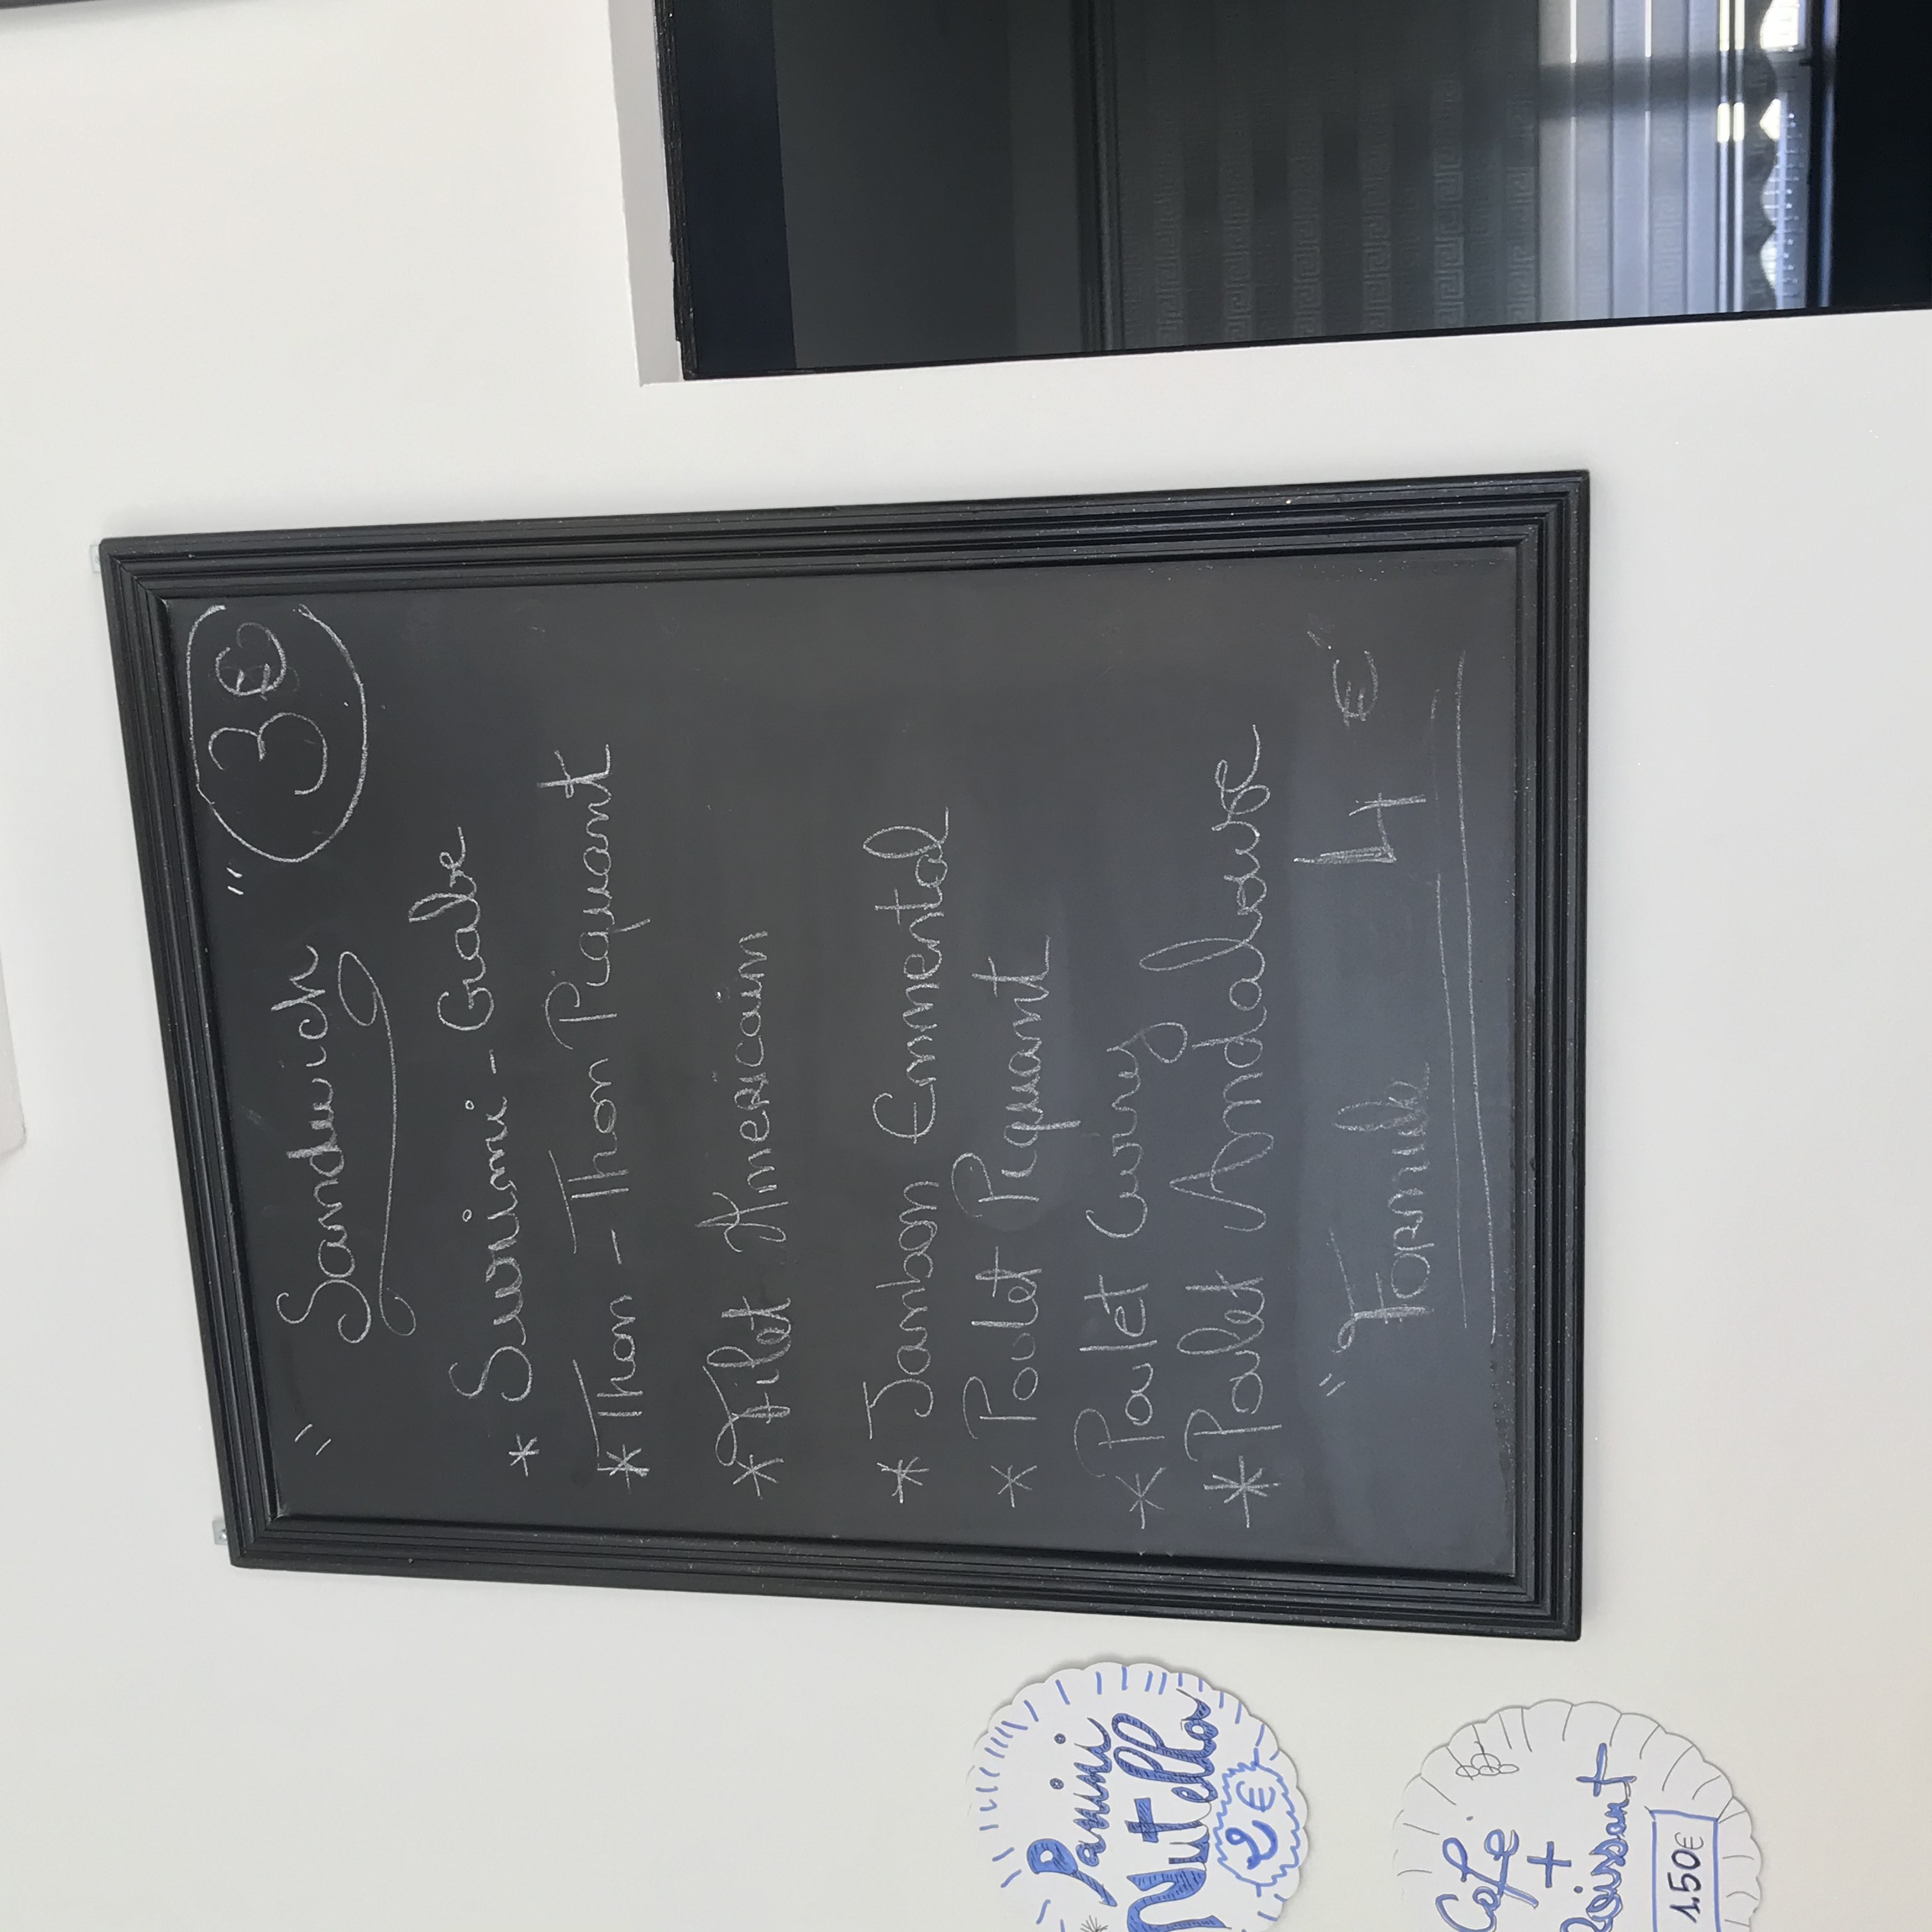 " Sandwich " 3€
* Surimi - Crabe
* Thon - Thon Piquant
* Filet Americain
* Jambon Emmental
* Poulet Piquant
* Poulet Curry
* Poulet Andalouse
" Formule 4 €
Panini
Nutella
2€
Café
+
Croissant
1.50€